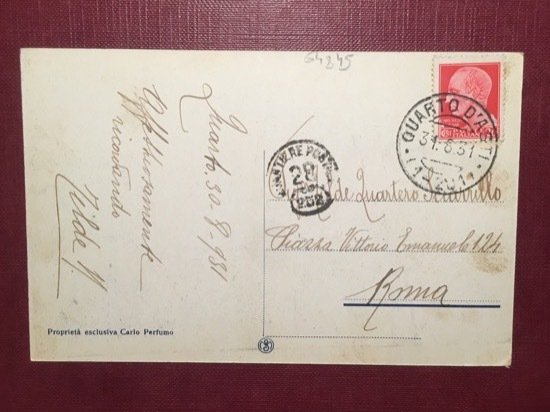 64845
Quarto, 30-8-931
Affettuosamente
ricordando
Tilde
QUARTO D'ASTI
31.8.31
PORTA
20
Quartero
Piazza Vittorio Emanuele 124
Roma
Proprietà esclusiva Carlo Perfumo